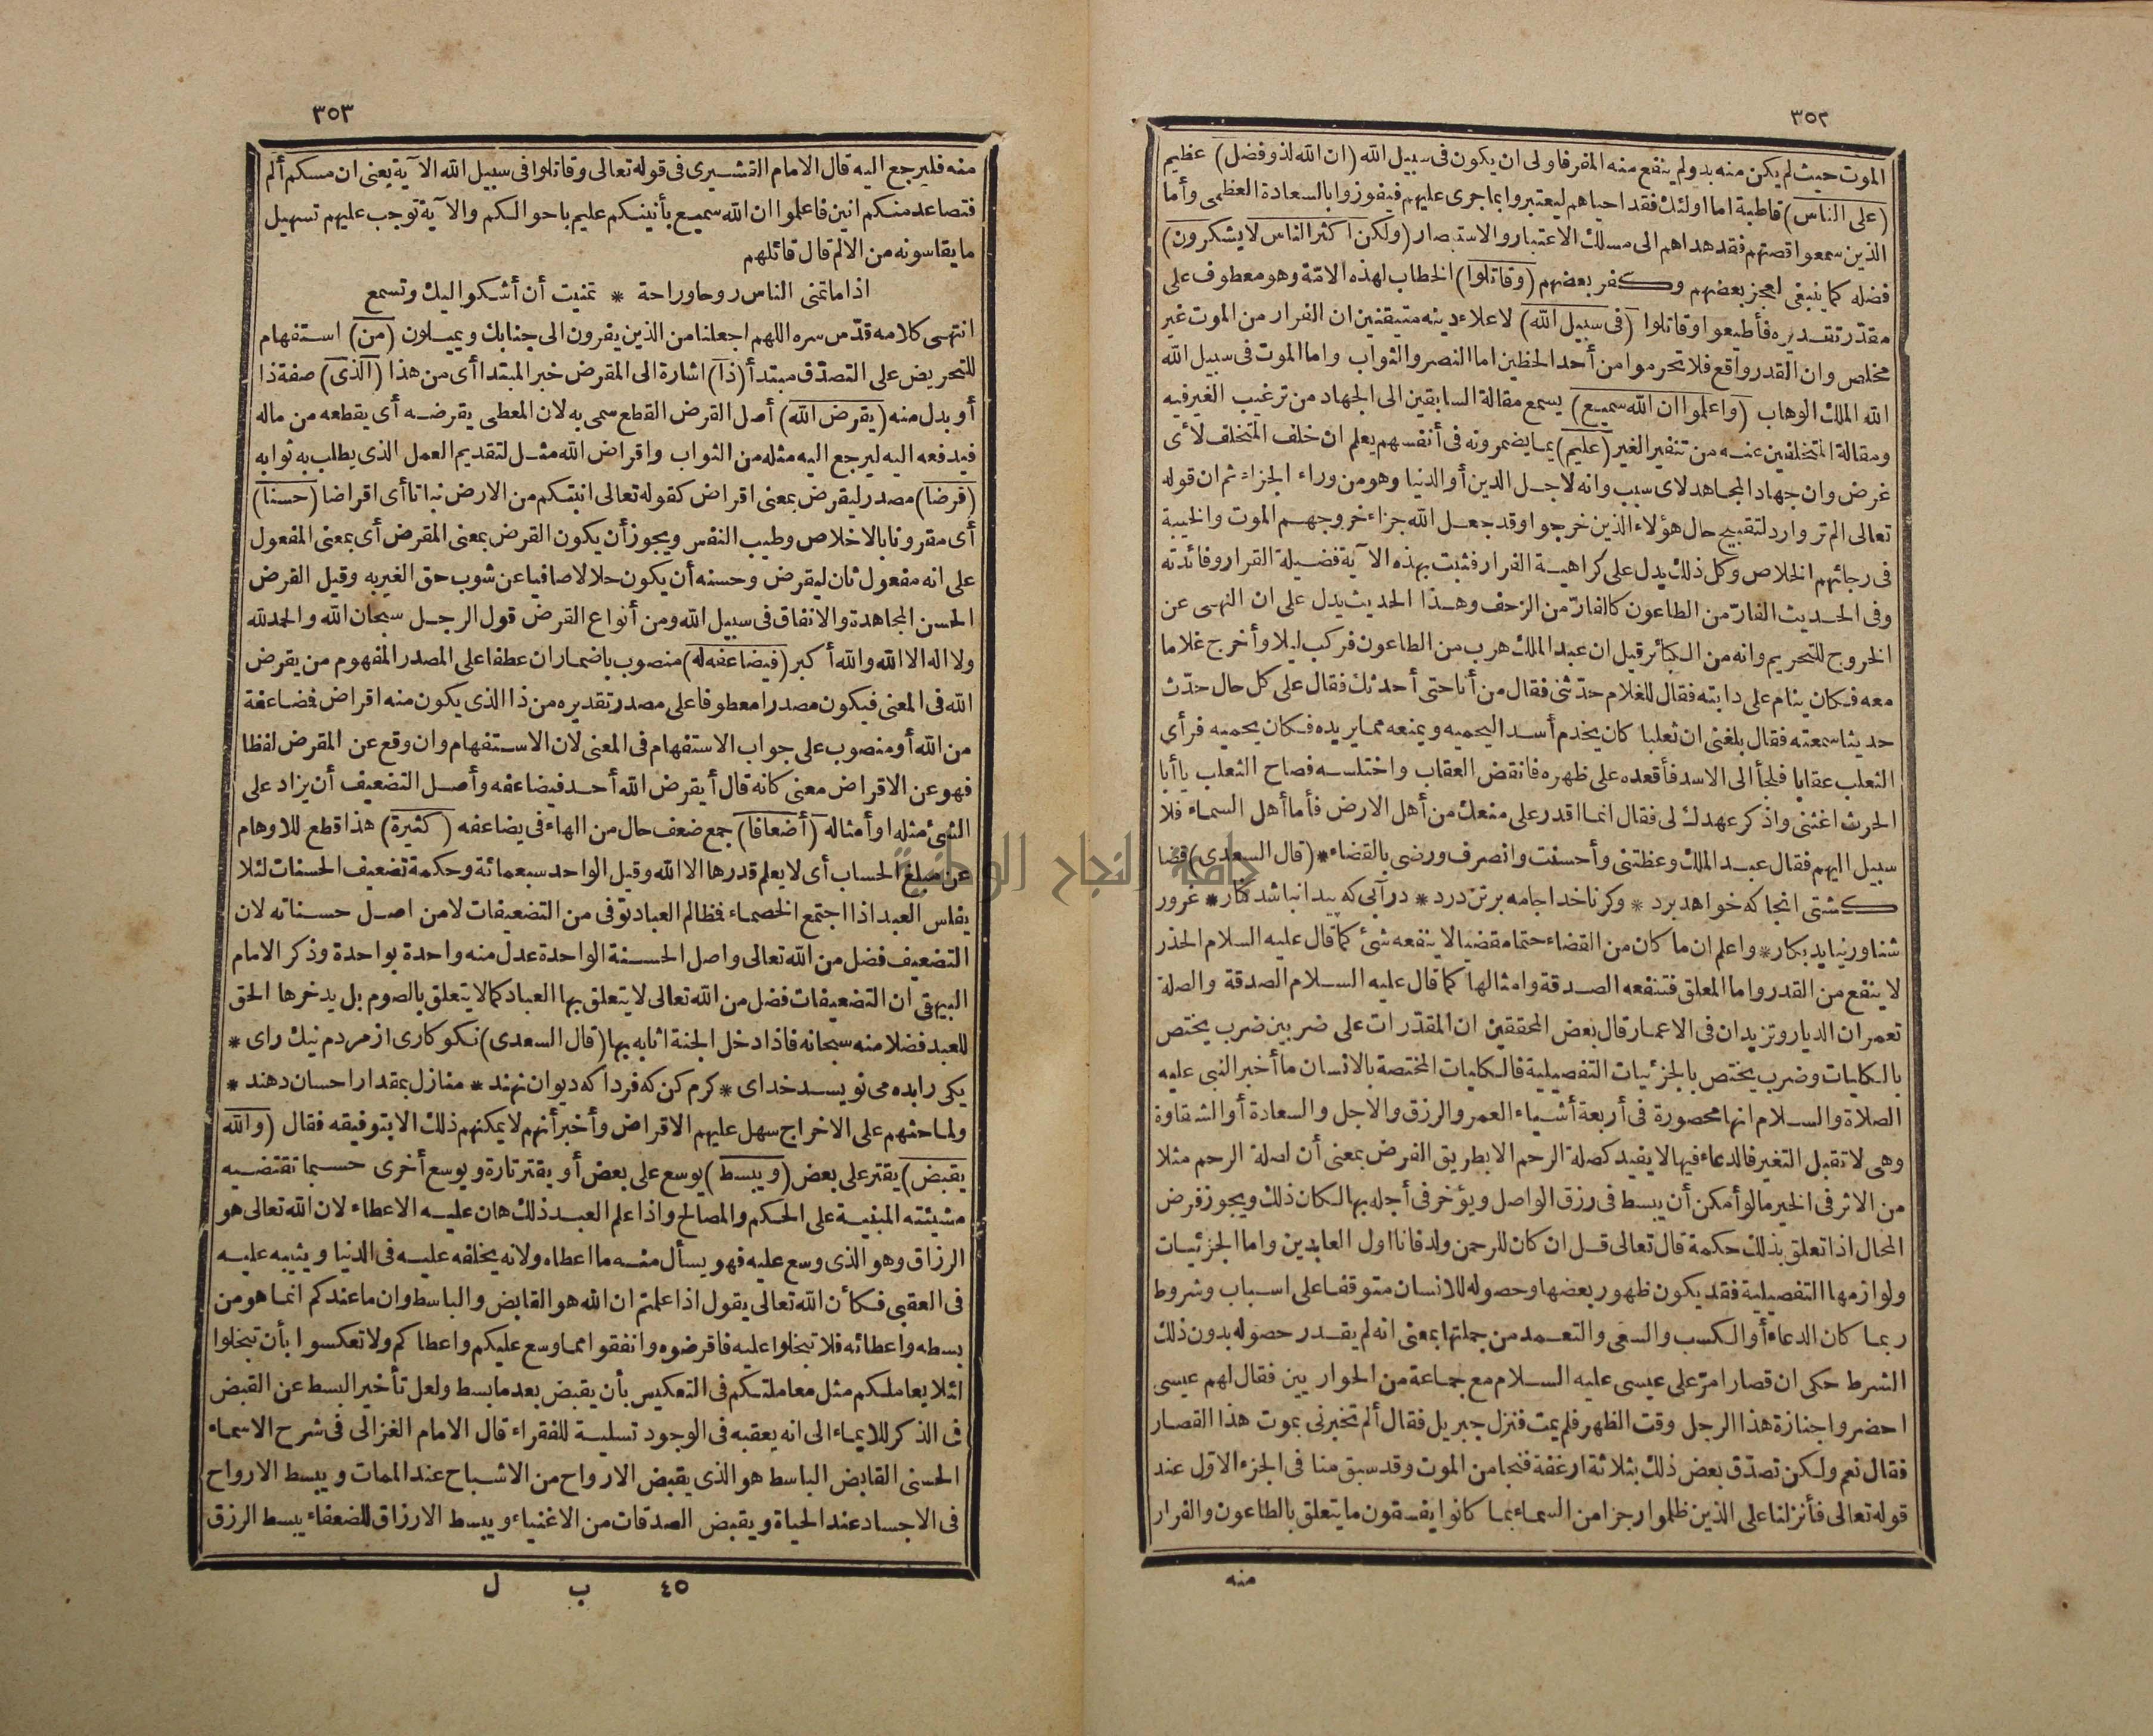 ٣٥٢
الموت حيث لم يكن منه بد ولم ينفع منه المفر فاولى ان يكون فى سبيل الله (ان الله لذو فضل) عظيم
(على الناس) قاطبة اما اولئك فقد احياهم ليعتبروا بما جرى عليهم فيفوزوا بالسعادة العظمى وأما
الذين سمعوا قصتهم فقد هداهم الى مسلك الاعتبار والاستبصار (ولكن اكثر الناس لا يشكرون)
فضله كما ينبغى لعجز بعضهم وكفر بعضهم (وقاتلوا) الخطاب لهذه الامّة وهو معطوف على
مقدّر تقديره فأطيعوا وقاتلوا (فى سبيل الله) لاعلاء دينه متيقنين ان الفرار من الموت غير
مخلص وان القدر واقع فلا تحرموا من أحد الحظين اما النصر والثواب واما الموت فى سبيل الله
الله الملك الوهاب (واعلموا ان الله سميع) يسمع مقالة السابقين الى الجهاد من ترغيب الغير فيه
ومقالة المتخلفين عنه من تنفير الغير (عليم) بما يضمرونه فى أنفسهم يعلم ان خلف المتخلف لأى
غرض وان جهاد المجاهد لاى سبب وانه لاجل الدين أو الدنيا وهو من وراء الجزاء ثم ان قوله
تعالى الم تر وارد لتقبيح حال هؤلاء الذين خرجوا وقد جعل الله جزاء خروجهم الموت والخيبة
فى رجائهم الخلاص وكل ذلك يدل على كراهية الفرار فثبت بهذه الآية فضيلة القرار وفائدته
وفى الحديث الفارّ من الطاعون كالفارّ من الزحف وهذا الحديث يدل على ان النهى عن
الخروج للتحريم وانه من الكبائر قيل ان عبد الملك هرب من الطاعون فركب ليلا وأخرج غلاما
معه فكان ينام على دابته فقال للغلام حدّثنى فقال من أنا حتى أحدثك فقال على كل حال حدّث
حديثا سمعته فقال بلغنى ان ثعلبا كان يخدم أسدا ليحميه ويمنعه مما يريده فكان يحميه فرأى
الثعلب عقابا فلجأ الى الاسد فأقعده على ظهره فانقض العقاب واختلسه فصاح الثعلب يا أبا
الحرث اغثنى واذكر عهدك لى فقال انما اقدر على منعك من أهل الارض فأما أهل السماء فلا
سبيل اليهم فقال عبد الملك وعظتنى وأحسنت وانصرف ورضى بالقضاء * (قال السعدى) قضا
كشتى انجا كه خواهد برد * وكر ناخدا جامه بر تن درد * در آبى كه پيدا نباشد كنار * غرور
شناور نيايد بكار * واعلم ان ما كان من القضاء حتما مقضيا لا ينفعه شئ كما قال عليه السلام الحذر
لا ينفع من القدر واما المعلق فتنفعه الصدقة وامثالها كما قال عليه السلام الصدقة والصلة
تعمران الديار وتزيدان فى الاعمار قال بعض المحققين ان المقدّرات على ضربين ضرب يختص
بالكليات وضرب يختص بالجزئيات التفصيلية فالكليات المختصة بالانسان ما أخبر النبى عليه
الصلاة والسلام انها محصورة فى أربعة أشياء العمر والرزق والاجل والسعادة أو الشقاوة
وهى لا تقبل التغير فالدعاء فيها لا يفيد كصلة الرحم الا بطريق الفرض بمعنى أن لصلة الرحم مثلا
من الاثر فى الخير ما لو أمكن أن يبسط فى رزق الواصل ويؤخر فى أجله بها لكان ذلك ويجوز فرض
المحال اذا تعلق بذلك حكمة قال تعالى قل ان كان للرحمن ولد فانا اول العابدين واما الجزئيات
ولوازمها التفصيلية فقد يكون ظهور بعضها وحصوله للانسان متوقفا على اسباب وشروط
ربما كان الدعاء أو الكسب والسعى والتعمد من جملتها بمعنى انه لم يقدر حصوله بدون ذلك
الشرط حكى ان قصارا مرّ على عيسى عليه السلام مع جماعة من الحواريين فقال لهم عيسى
احضروا جنازة هذا الرجل وقت الظهر فلم يمت فنزل جبريل فقال ألم تخبرنى بموت هذا القصار
فقال نعم ولكن تصدّق بعض ذلك بثلاثة ارغفة فنجا من الموت وقد سبق منا فى الجزء الاوّل عند
قوله تعالى فأنزلنا على الذين ظلموا رجزا من السماء بما كانوا يفسقون ما يتعلق بالطاعون والفرار
منه
٣٥٣
منه فليرجع اليه قال الامام القشيرى فى قوله تعالى وقاتلوا فى سبيل الله الآية يعنى ان مسكم ألم
فتصاعد منكم انين فاعلموا ان الله سميع بأنينكم عليم باحوالكم والآية توجب عليهم تسهيل
ما يقاسونه من الالم قال قائلهم
اذا ما تمنى الناس روحا وراحة * تمنيت أن أشكو اليك وتسمع
انتهى كلامه قدّس سره اللهم اجعلنا من الذين يفرون الى جنابك ويميلون (من) استفهام
للتحريض على التصدّق مبتدأ (ذا) اشارة الى المقرض خبر المبتدا أى من هذا (الذى) صفة ذا
أو بدل منه (يقرض الله) أصل القرض القطع سمى به لان المعطى يقرضه أى يقطعه من ماله
فيدفعه اليه ليرجع اليه مثله من الثواب واقراض الله مثل لتقديم العمل الذى يطلب به ثوابه
(قرضا) مصدر ليقرض بمعنى اقراض كقوله تعالى انبتكم من الارض نباتا أى اقراضا (حسنا)
أى مقرونا بالاخلاص وطيب النفس ويجوز أن يكون القرض بمعنى المقرض أى بمعنى المفعول
على انه مفعول ثان ليقرض وحسنه أن يكون حلالا صافيا عن شوب حق الغير به وقيل القرض
الحسن المجاهدة والانفاق فى سبيل الله ومن أنواع القرض قول الرجل سبحان الله والحمد لله
ولا اله الا الله والله أكبر (فيضاعفه له) منصوب باضمار ان عطفا على المصدر المفهوم من يقرض
الله فى المعنى فيكون مصدرا معطوفا على مصدر تقديره من ذا الذى يكون منه اقراض فضاعفة
من الله أو منصوب على جواب الاستفهام فى المعنى لان الاستفهام وان وقع عن المقرض لفظا
فهو عن الاقراض معنى كانه قال أيقرض الله أحد فيضاعفه وأصل التضعيف أن يزاد على
الشئ مثله او أمثاله (أضعافا) جمع ضعف حال من الهاء فى يضاعفه (كثيرة) هذا قطع للاوهام
عن مبلغ الحساب أى لا يعلم قدرها الا الله وقيل الواحد سبعمائة وحكمة تضعيف الحسنات لئلا
يفلس العبد اذا اجتمع الخصماء فظالم العباد توفى من التضعيفات لا من اصل حسناته لان
التضعيف فضل من الله تعالى واصل الحسنة الواحدة عدل منه واحدة بواحدة وذكر الامام
البيهقى ان التضعيفات فضل من الله تعالى لا يتعلق بها العباد كما لا يتعلق بالصوم بل يدخرها الحق
للعبد فضلا منه سبحانه فاذا دخل الجنة اثابه بها (قال السعدى) نكوكارى از مردم نيك راى *
يكى را بده مى نويسد خداى * كرم كن كه فردا كه ديوان نهند * منازل بمقدار احسان دهند *
ولما حثهم على الاخراج سهل عليهم الاقراض وأخبر أنهم لا يمكنهم ذلك الا بتوفيقه فقال (والله
يقبض) يقتر على بعض (ويبسط) يوسع على بعض أو يقتر تارة ويوسع أخرى حسبما تقتضيه
مشيئته المبنية على الحكم والمصالح واذا علم العبد ذلك هان عليه الاعطاء لان الله تعالى هو
الرزاق وهو الذى وسع عليه فهو يسأل منه ما اعطاه ولانه يخلفه عليه فى الدنيا ويثيبه عليه
فى العقبى فكأن الله تعالى يقول اذا علمتم ان الله هو القابض والباسط وان ما عندكم انما هو من
بسطه واعطائه فلا تبخلوا عليه فاقرضوه وانفقوا مما وسع عليكم واعطاكم ولا تعكسوا بأن تبخلوا
لئلا يعاملكم مثل معاملتكم فى التعكيس بأن يقبض بعد ما بسط ولعل تأخير البسط عن القبض
فى الذكر للايماء الى انه يعقبه فى الوجود تسلية للفقراء قال الامام الغزالى فى شرح الاسماء
الحسنى القابض الباسط هو الذى يقبض الارواح من الاشباح عند الممات ويبسط الارواح
فى الاجساد عند الحياة ويقبض الصدقات من الاغنياء ويبسط الارزاق للضعفاء يبسط الرزق
٤٥ ب ل
جامعة النجاح الوطنية